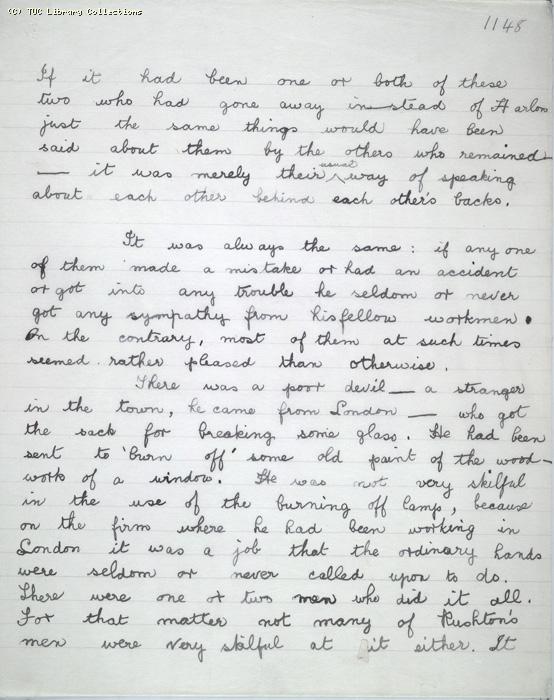 (C) TUC Library Collections
1148
If it had been one or both of these
two who had gone away in-stead of Harlow
just the same things would have been
said about them by the others who remained—
— it was merely their usual way of speaking
about each other behind each other's backs.
It was always the same: if any one
of them made a mistake or had an accident
or got into any trouble he seldom or never
got any sympathy from his fellow workmen.
On the contrary, most of them at such times
seemed rather pleased than otherwise.
There was a poor devil — a stranger
in the town, he came from London — who got
the sack for breaking some glass. He had been
sent to 'burn off' some old paint of the wood-
work of a window. He was not very skilful
in the use of the burning off lamp, because
on the firm where he had been working in
London it was a job that the ordinary hands
were seldom or never called upon to do.
There were one or two men who did it all.
For that matter not many of Rushton's
men were very skilful at it either. It